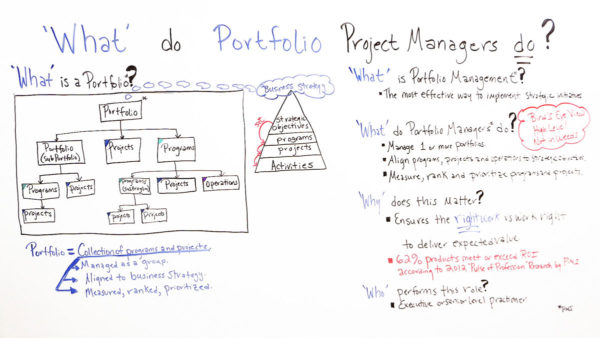 'What' do Portfolio Project Managers do?
'What' is a Portfolio?
Portfolio*
Portfolio
(Sub Portfolio)
Projects
Programs
Programs
Projects
Programs
Projects
Operations
projects
projects
Projects
Business Strategy
strategic
objectives
programs
projects
Activities
Portfolio = Collection of programs and projects.
Managed as a group.
Aligned to business strategy.
Measured, ranked, prioritized.
'What' is Portfolio Management?
The most effective way to implement strategic initiatives
'What' do Portfolio Managers* do?
Manage 1 or more portfolios.
Align programs, projects and operations to strategic
Measure, rank and prioritize programs and projects.
Birds Eye View
High Level
Not in weeds
'Why' does this matter?
Ensures the right work vs work right
to deliver expected value
62% products meet or exceed ROI
according to 2012 Pulse of Profession Research by PMI
'Who' performs this role?
Executive or senior level practitioner
*PMI